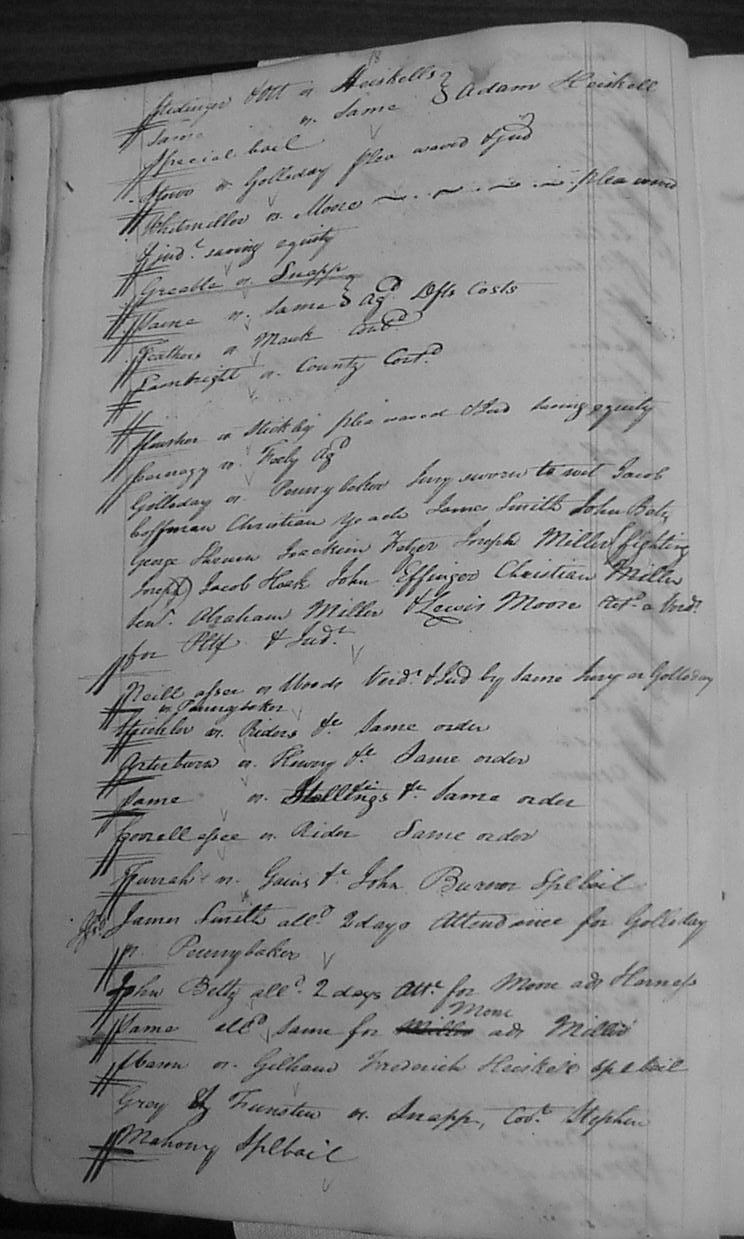 18
vs Heiskells } Adam Heiskell
Same vs. Same
Special bail
vs Golladay plea waved & Jud
Whitmiller vs. Moore plea waved
& jud.t saving equity
Greable vs. Snapp
Same vs. Same } Ag.d Defts Costs
Feathers vs Mauk Cont.d
Lambright vs. County Cont.d
vs Stickley plea waved & Jud saving equity
vs. Feely Ag.d
Golladay vs. Pennybaker Jury sworn to wit Jacob
Coffman Christian James Smith John
George Joseph Miller (fighting
Joseph) Jacob Hock John Effinger Christian Miller
Sen.r Abraham Miller & Lewis Moore ret.d a Verd.t
for Plf & Jud.t
Neill assee vs Woods Verd.t & Jud by same Jury as Golladay
vs. Pennybaker
vs. Riders &c Same order
Arterburn vs. Henry &c Same order
Same vs. Stallings &c Same order
assee vs. Rider Same order
vs. Gains &c John Spl bail
James Smith all.d 2 days Attendance for Golladay
vs. Pennybaker
John Betty all.d 2 days Att.e for Moore ads Harness
Moore
Same all.d same for Miller ads Miller
vs. Gilham Frederick Heiskell spl bail
Grey & Funsten vs. Snapp, Cov.t Stephen
Mahony Spl bail